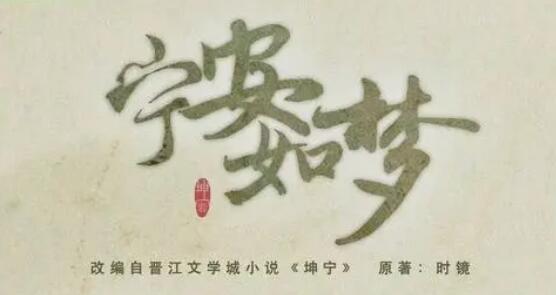 宁安如梦
坤宁
改编自晋江文学城小说《坤宁》 原著：时镜